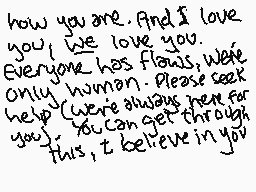 how you are. And I love
you, we love you.
Everyone has flaws, we're
only human. Please seek
help (we're always here for
you). You can get through
this, I believe in you